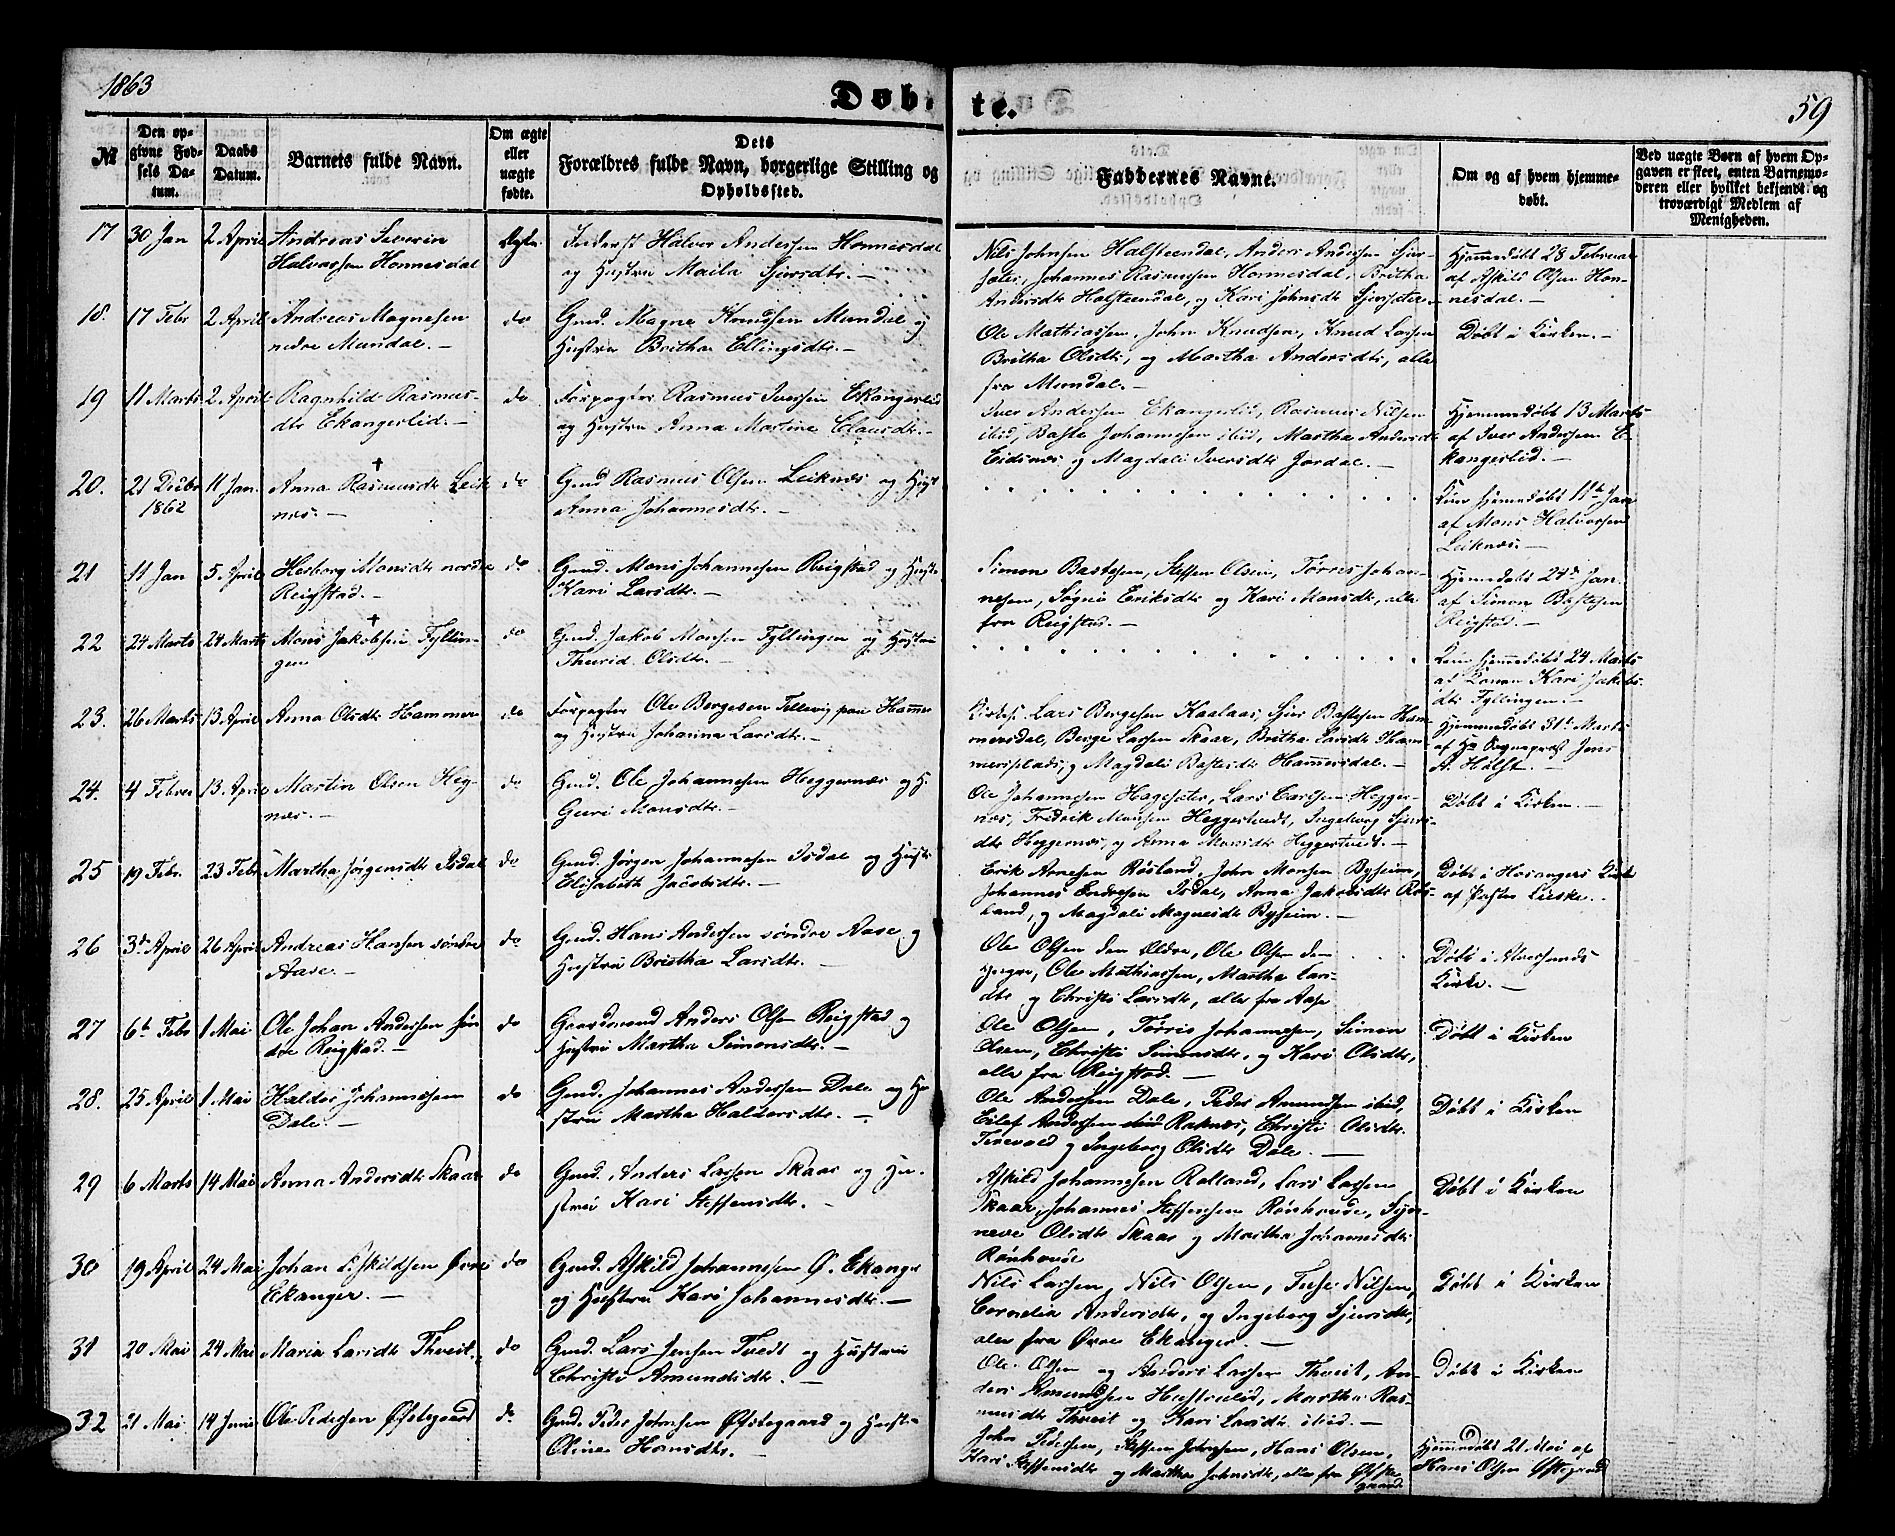 1863
Døb-
te.
59
№
Den op-
givne Fød-
sels Da-
tum.
Daabs
Datum.
Barnets fulde Navn.
Om ægte
eller
uægte
fødte.
Dets
Forældres fulde Navn, borgerlige Stilling og
Opholdssted.
Faddernes Navne.
Om og af hvem hjemme-
døbt.
Ved uægte Børn af hvem Op-
gaven er skeet, enten Barnemo-
deren eller hvilket bekjendt og
troværdigt Medlem af
Menigheden.
17 30 Jan 2 April Andreas Severin
Halvorsen Honnesdal
Ægte
Inderst Halvor Andersen Honnesdal
og Hustru Maila Sjursdtr. —
Nils Johnsen Halsteendal, Anders Andersen
Johannes Rasmussen Honnesdal, Britha
Andersdtr Halsteendal, og Kari Johnsdtr
Hjemmedøbt 28 Februar
af Askild Olsen Hon-
nesdal. —
18. 17 Febr 2 April Andreas Magnesen
nedre Mundal. —
do
Gmd. Magne Knudsen Mundal og
Hustru Britha Ellingsdtr. —
Ole Mathiassen, John Knudsen, Knud Larsen
Britha Olsdtr, og Martha Andersdtr, alle
fra Mundal. —
Døbt i Kirken. —
19 11 Marts 2 April Ragnhild Rasmus-
dtr Ekangerlid. —
do
Forpagter Rasmus Iversen Ekangerlid
og Hustru Anna Martine Clausdtr. —
Iver Andersen Ekangerlid, Rasmus Nilsen
ibid, Baste Johannesen ibid, Martha Andersdtr
Eidsnes og Magdali Iversdtr Jordal. —
Hjemmedøbt 13 Marts
af Iver Andersen E-
kangerlid. —
20. 21 Decbr
1862
11 Jan. Anna † Rasmusdtr Leik
næs. —
do
Gmd Rasmus Olsen Leiknæs og Hust
Anna Johannesdtr. —
Kun hjemmedøbt 11te Jan
af Mons Halvorsen
Leiknæs. —
21 11 Jan 5 April Herborg Monsdtr nordre
Reigstad. —
do
Gmd. Mons Johannesen Reigstad og Hust.
Kari Larsdtr. —
Simon Bastesen, Steffen Olsen, Tørris Johan-
nesen, Søgni Eriksdtr og Kari Monsdtr, alle
fra Reigstad. —
Hjemmedøbt 24de Jan.
af Simon Bastesen
Reigstad. —
22 24 Marts 24 Marts Mons Jakobsen † Fyllin-
gen
do
Gmd. Jakob Monsen Fyllingen og Hustru
Thurid Olsdtr. —
Kun hjemmedøbt 24 Marts
af Konen Kari Jakobs-
dtr Fyllingen. —
23. 26 Marts 13 April Anna Olsdtr Hammer
do
Forpagter Ole Bergesen Tellevig paa Hammer
og Hustru Johanna Larsdtr. —
Lars Bergesen Kaalaas, Sjur Bastesen Ham-
mersdal, Berge Larsen Skaar, Britha Larsdtr Ham-
mersplads, og Magdali Bastesdtr Hammersdal. —
Hjemmedøbt 31te Marts
af Hr Sognepræst Jens
A. Holst. —
24. 4 Februar 13 April Martin Olsen Heg-
næs. —
do
Gmd. Ole Johannesen Heggernæs og H.
Guri Monsdtr. —
Ole Johannesen Hagesæter, Lars Carlsen Hegger-
næs, Fredrik Monsen Heggertvedt, Ingeborg Sjurs-
dtr Heggernæs, og Anna Monsdtr Heggertvedt. —
Døbt i Kirken. —
25 19 Febr. 23 Febr Martha Jørgensdtr Isdal
do
Gmd. Jørgen Johannesen Isdal og Hustr
Elisabeth Jacobsdtr. —
Erik Arnesen Røsland, John Monsen Byheim,
Johannes Endresen Isdal, Anna Jakobsdtr Røs-
land, og Magdali Magnesdtr Byheim. —
Døbt i Hosangers Kirke
af Pastor Lieske.
26 3de April 26 April Andreas Hansen søndre
Aase. —
do
Gmd. Hans Andersen søndre Aase og
Hustru Britha Larsdtr. —
Ole Olsen den ældre, Ole Olsen den
yngre, Ole Mathiassen, Martha Lars-
dtr og Christi Larsdtr, alle fra Aase
Døbt i Alversunds
Kirke. —
27 6te Febr 1 Mai Ole Johan Andersen søn
dre Reigstad. —
do
Gaardmand Anders Olsen Reigstad og
Hustru Martha Simonsdtr. —
Ole Olsen, Tørris Johannesen, Simon
Olsen, Christi Simonsdtr, og Kari Olsdtr,
alle fra Reigstad. —
Døbt i Kirken
28. 25 April 1 Mai Haldor Johannesen
Dale. —
do
Gmd. Johannes Andersen Dale og Hu
stru Martha Haldorsdtr. —
Ole Andersen Dale, Peder Amundsen ibid,
Eilef Andersen Raknæs, Christi Olsdtr
og Ingeborg Olsdtr Dale. —
Døbt i Kirken
29 6 Marts 14 Mai Anna Andersdtr Skaar
do
Gmd. Anders Larsen Skaar og Hu-
stru Kari Steffensdtr. —
Askild Johannesen Rolland, Lars Larsen
Skaar, Johannes Steffensen Rønhovde, Syn-
neve Olsdtr Skaar og Martha Johannesdtr
Rønhovde
Døbt i Kirken
30 19 April 24 Mai Johan Askildsen Øvre
Ekanger. —
do
Gmd. Askild Johannesen Ø. Ekanger
og Hustru Kari Johannesdtr. —
Nils Larsen, Nils Olsen, Nilsen,
Cornelia Andersdtr, og Ingeborg Sjursdtr,
alle fra Øvre Ekanger. —
Døbt i Kirken
31 20 Mai 24 Mai Maria Larsdtr Thveit.
do
Gmd. Lars Jensen Tvedt og Hustru
Christi Amundsdtr. —
Ole Olsen og Anders Larsen Thveit, An-
ders Amundsen Martha Ras-
musdtr Thveit og Kari Larsdtr ibid. —
Døbt i Kirken
32 21 Mai 14 Juni Ole Pedersen Østegaard
do
Gmd. Peder Johnsen Østegaard og Hust.
Oline Hansdtr. —
John Pedersen, Steffen Johnsen, Hans Olsen,
Kari Steffensdtr og Martha Johnsdtr, alle fra Øste
gaard.
Hjemmedøbt 21 Mai af
Hans Olsen Østegaard